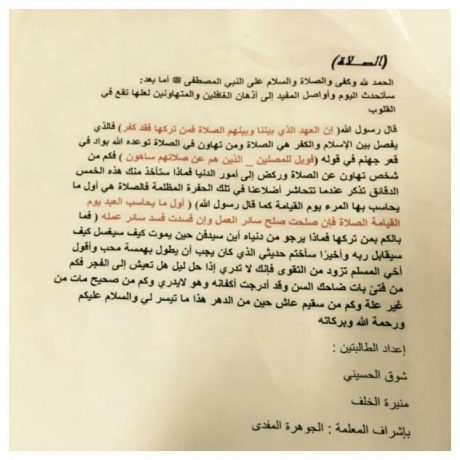 (الصـلاة)
الحمد لله وكفى والصلاة والسلام على النبي المصطفى ﷺ أما بعد:
سأتحدث اليوم وأواصل المفيد إلى أذهان الغافلين والمتهاونين لعلها تقع في
القلوب
قال رسول الله( إن العهد الذي بيننا وبينهم الصلاة فمن تركها فقد كفر) فالذي
يفصل بين الإسلام والكفر هي الصلاة ومن تهاون في الصلاة توعده الله بواد في
قعر جهنم في قوله (فويل للمصلين _ الذين هم عن صلاتهم ساهون ) فكم من
شخص تهاون عن الصلاة وركض إلى أمور الدنيا فماذا ستأخذ منك هذه الخمس
الدقائق تذكر عندما تتحاشر أضلاعنا في تلك الحفرة المظلمة فالصلاة هي أول ما
يحاسب بها المرء يوم القيامة كما قال رسول الله( ( أول ما يحاسب العبد يوم
القيامة الصلاة فإن صلحت صلح سائر العمل وإن فسدت فسد سائر عمله ) فما
بالكم بمن تركها فماذا يرجو من دنياه أين سيدفن حين يموت كيف سيغسل كيف
سيقابل ربه وأخيرًا سأختم حديثي الذي كان يجب أن يطول بهمسة محب وأقول
أخي المسلم تزود من التقوى فإنك لا تدري إذا حل ليل هل تعيش إلى الفجر فكم
من فتىً بات ضاحك السن وقد أدرجت أكفانه وهو لايدري وكم من صحيح مات من
غير علة وكم من سقيم عاش حين من الدهر هذا ما تيسر لي والسلام عليكم
ورحمة الله وبركاته
إعداد الطالبتين :
شوق الحسيني
منيرة الخلف
بإشراف المعلمة : الجوهرة المفدى